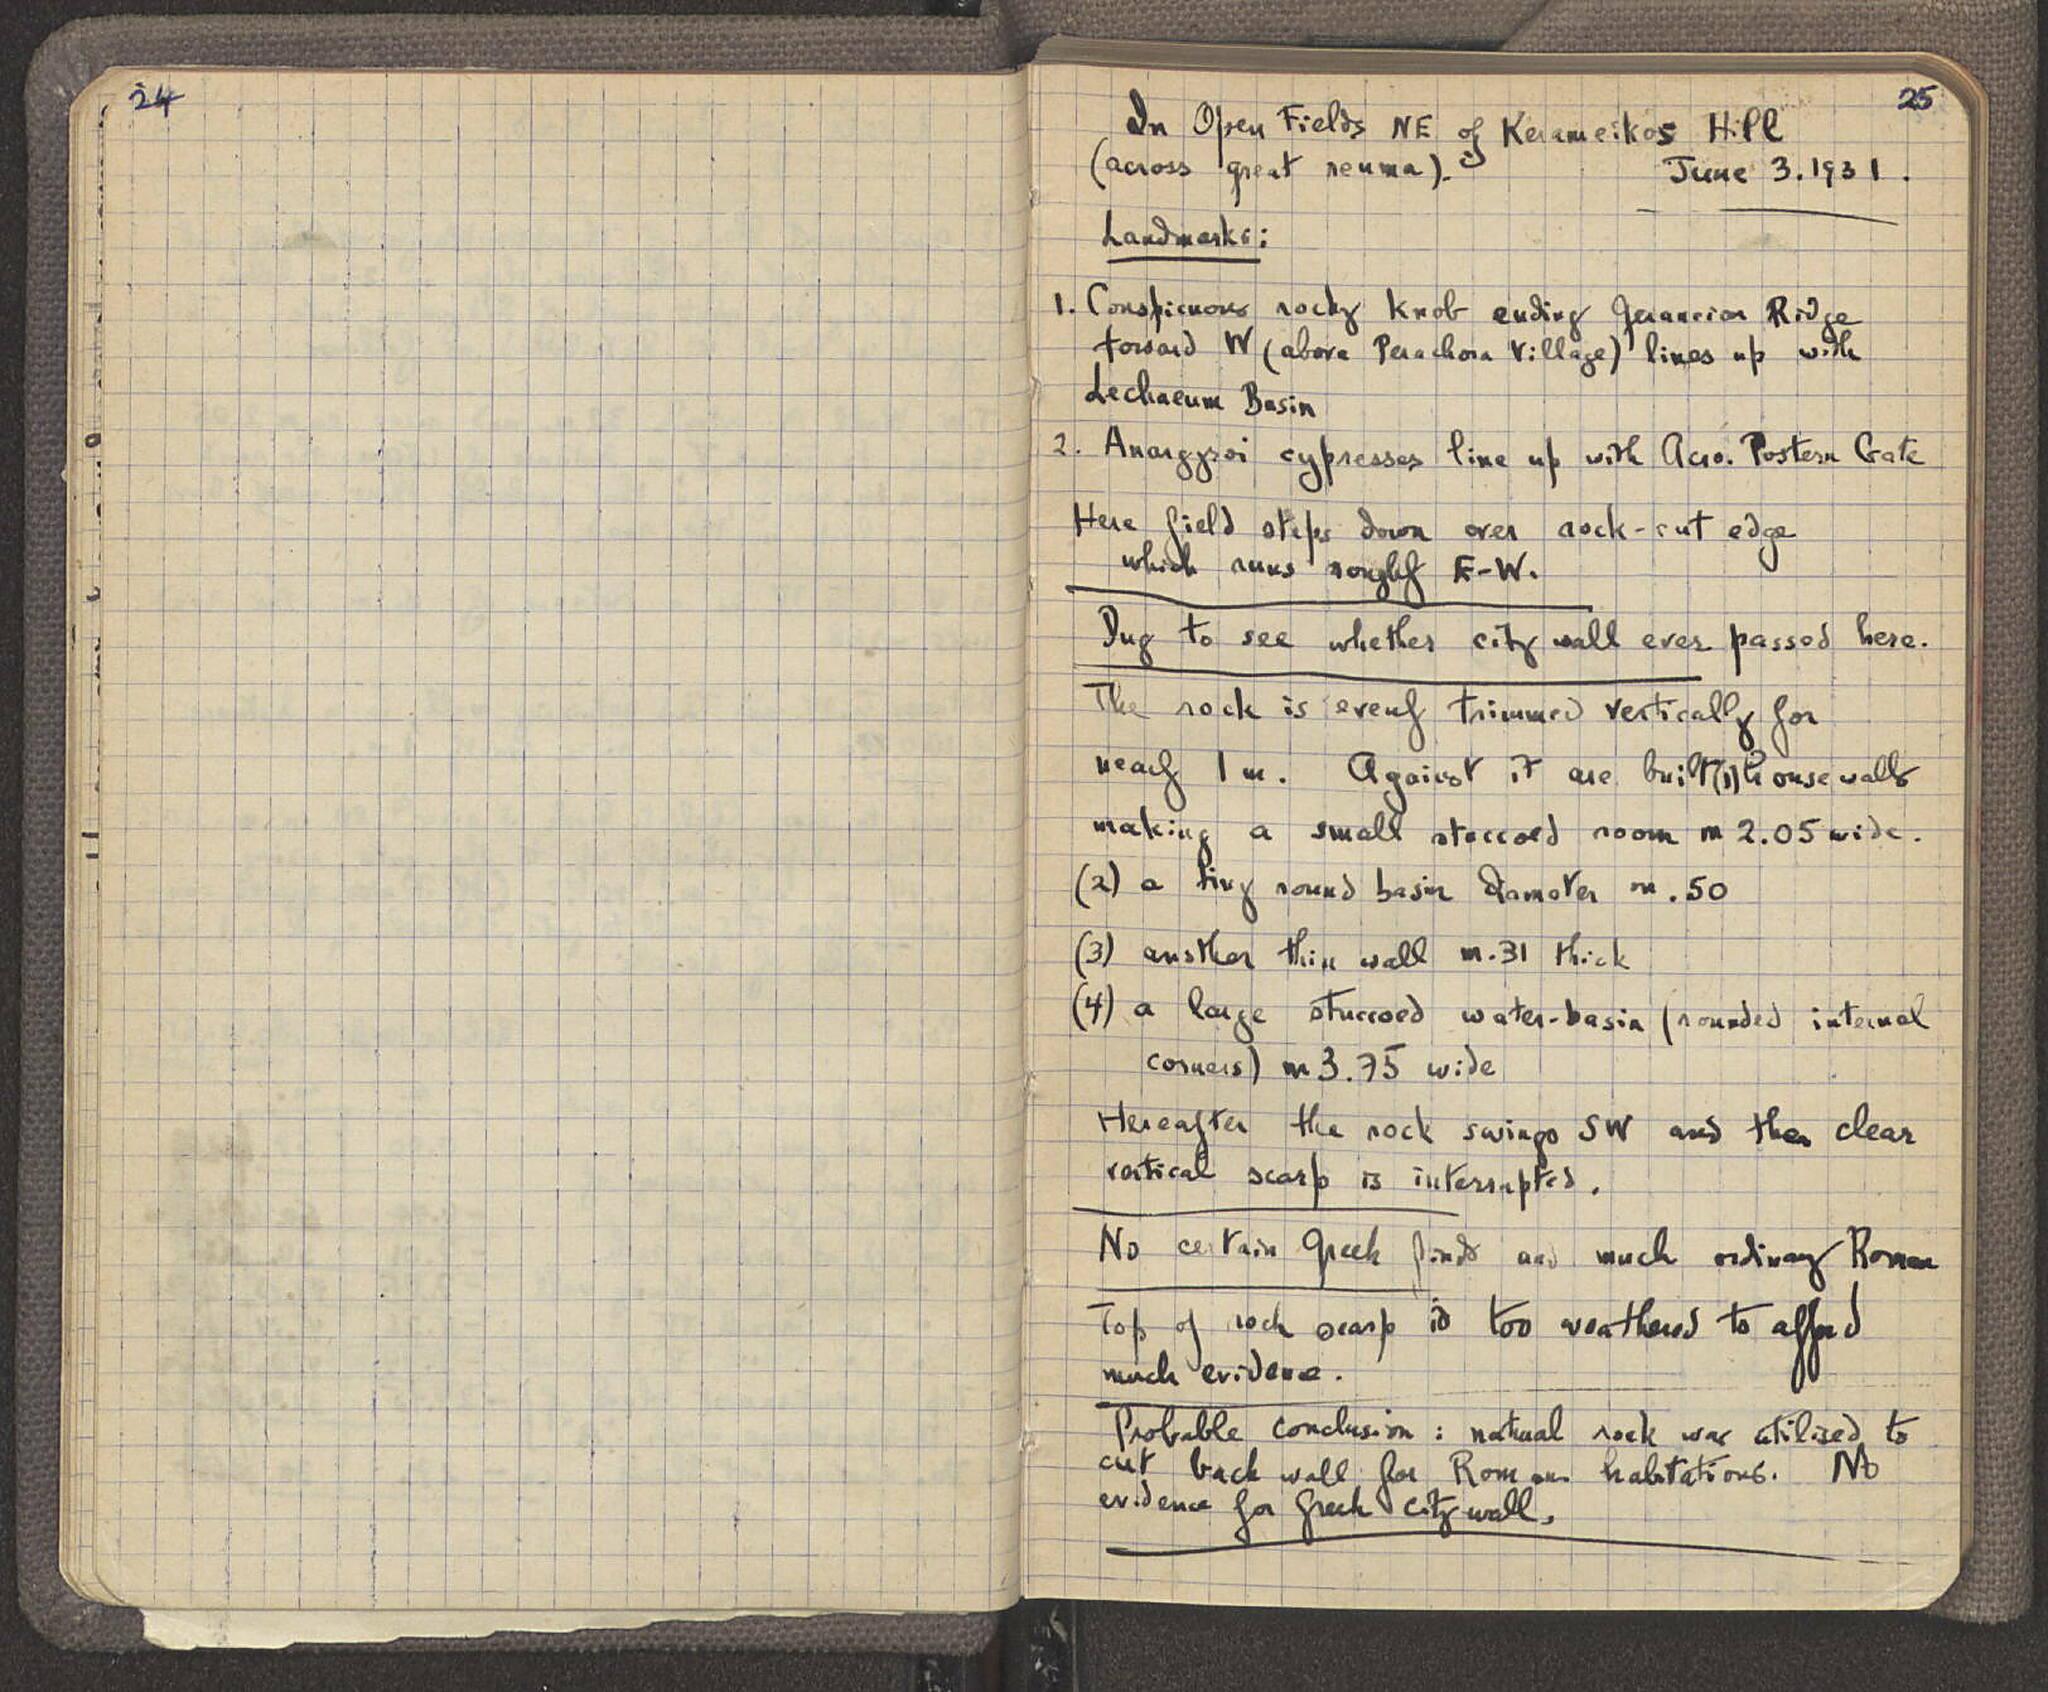 24
25
In Open Fields NE of Kerameikos Hill
(across great reuma).
June 3. 1931.
Landmarks:
1. Conspicuous rocky knob ending Geraneian Ridge
toward W (above Perachora Village) lines up with
Lechaeum Basin
2. Anargyroi cypresses line up with Acro. Postern Gate
Here field steps down over rock-cut edge
which runs roughly E-W.
Dug to see whether city wall ever passed here.
The rock is evenly trimmed vertically for
nearly 1 m. Against it are built (1) house walls
making a small stuccoed room m 2.05 wide.
(2) a tiny round basin diameter m .50
(3) another thin wall m .31 thick
(4) a large stuccoed water-basin (rounded internal
corners) m 3.75 wide
Hereafter the rock swings SW and then clear
vertical scarp is interrupted.
No certain Greek finds and much ordinary Roman
Top of rock scarp is too weathered to afford
much evidence.
Probable conclusion: natural rock was utilised to
cut back wall for Roman habitations. No
evidence for Greek city wall.